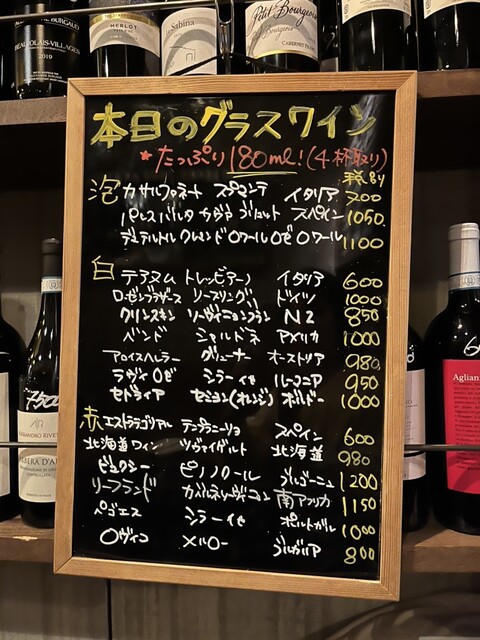 BEAUJOLAIS-VILLAGES
2019
MERLOT
Sabina
Petit Bourgeois
CABERNET FRANC
本日のグラスワイン
★たっぷり180ml!(4杯取り)
泡 カサルファネート スプマンテ イタリア 700
スペイン 1050
ロワール 1100
白 テアヌム トレッビアーノ イタリア 600
ローゼンブラザース リースリング ドイツ 1000
クリンスキン ソーヴィニヨンブラン NZ 850
ベンド シャルドネ アメリカ 1000
アロイスヘレラー グリューナー オーストリア 980
ラヴィ ロゼ シラー ルーマニア 950
セドライア セミヨン(オレンジ) ボルドー 1000
赤 エストラテゴリアル テンプラニーリョ スペイン 600
北海道ワイン ツヴァイゲルト 北海道 980
ピノノワール ブルゴーニュ 1200
リーフランド カベルネソーヴィニヨン 南アフリカ 1150
ペゴエス シラー ポルトガル 1000
ロヴィコ メルロー ブルガリア 800
Aglian